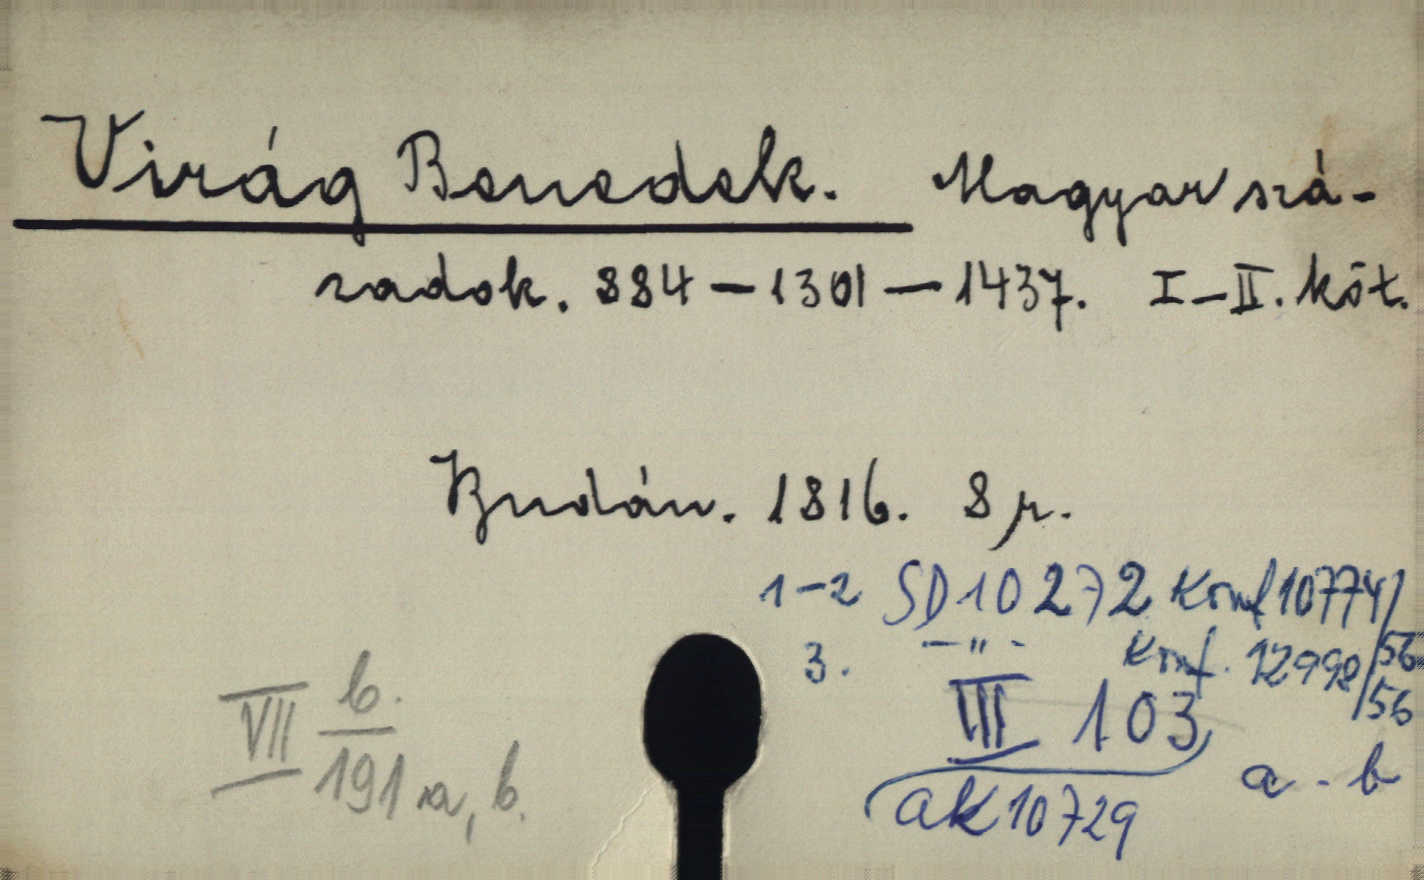 Virág Benedek. Magyar szá-
zadok. 884 – 1301 – 1437. I–II. köt.
Budán. 1816. 8 r.
1–2 SD 10272 Konf 10774/56
3. –"– Konf. 12998/56
VII b. / 191 a, b.
III 103 a - b
ak 10729